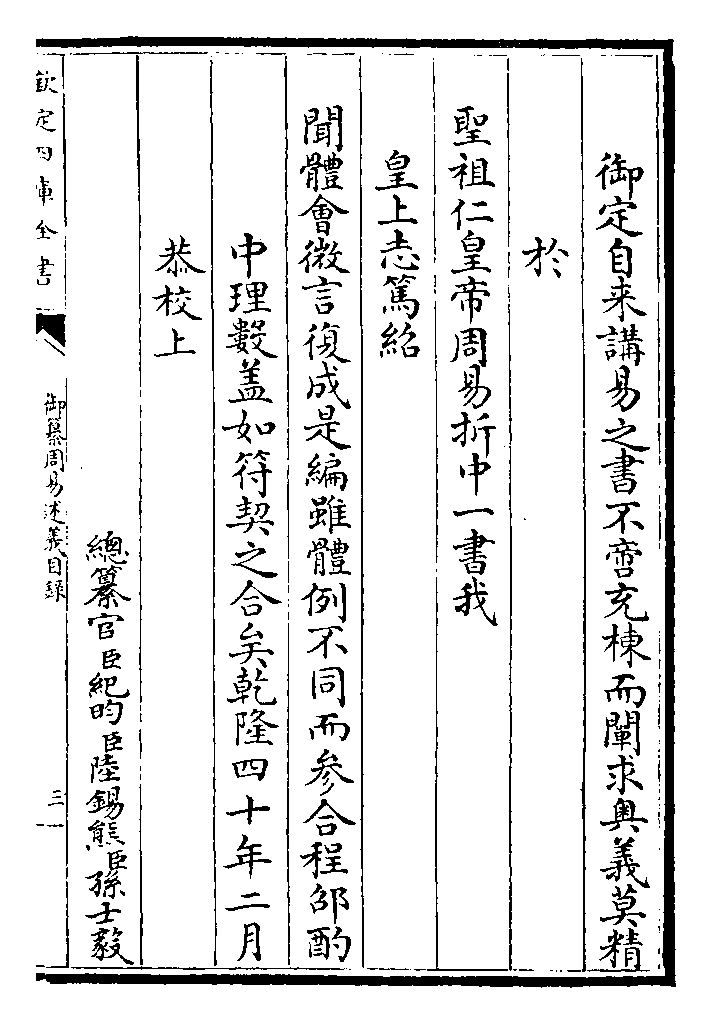 御定自来講易之書不啻充棟而闡求奥義莫精
於
聖祖仁皇帝周易折中一書我
皇上志篤紹
聞體會微言復成是編雖體例不同而參合程邵酌
中理數盖如符契之合矣乾隆四十年二月
恭校上
總纂官臣紀昀臣陸錫熊臣孫士毅
欽定四庫全書
御纂周易述義目録
三